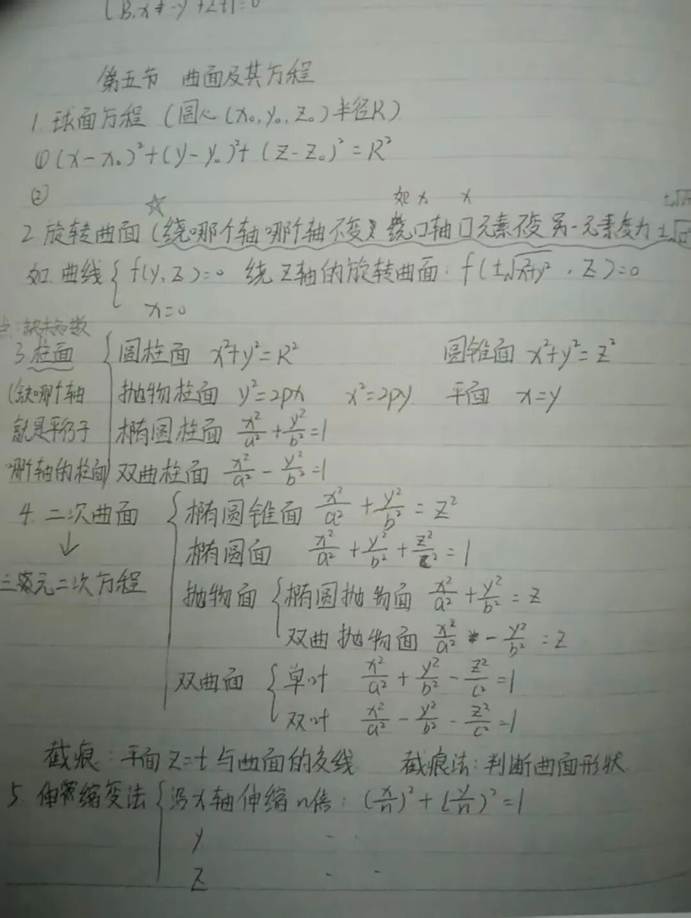 (B₁x+-y+z+1=0
第五节 曲面及其方程
1. 球面方程 (圆心(x₀,y₀,z₀)半径R)
① (x-x₀)²+(y-y₀)²+(z-z₀)²=R²
②
☆ 如 x x
2. 旋转曲面(绕哪个轴哪个轴不变) 绕口轴口元素不变 另一元素变为±√
如 曲线 { f(y,z)=0 绕z轴的旋转曲面: f(±√x²+y², z)=0
x=0
3. 柱面 { 圆柱面 x²+y²=R² 圆锥面 x²+y²=z²
(缺哪个轴 抛物柱面 y²=2px x²=2py 平面 x=y
就是平行于 椭圆柱面 x²/a²+y²/b²=1
哪个轴的柱面) 双曲柱面 x²/a²-y²/b²=1
4. 二次曲面 { 椭圆锥面 x²/a²+y²/b²=z²
↓ 椭圆面 x²/a²+y²/b²+z²/c²=1
三元二次方程 抛物面 { 椭圆抛物面 x²/a²+y²/b²=z
双曲抛物面 x²/a²-y²/b²=z
双曲面 { 单叶 x²/a²+y²/b²-z²/c²=1
双叶 x²/a²-y²/b²-z²/c²=1
截痕: 平面z=t与曲面的交线 截痕法: 判断曲面形状
5. 伸缩变法 { 沿x轴伸缩n倍: (x/n)²+(y/n)²=1
y - -
z - -